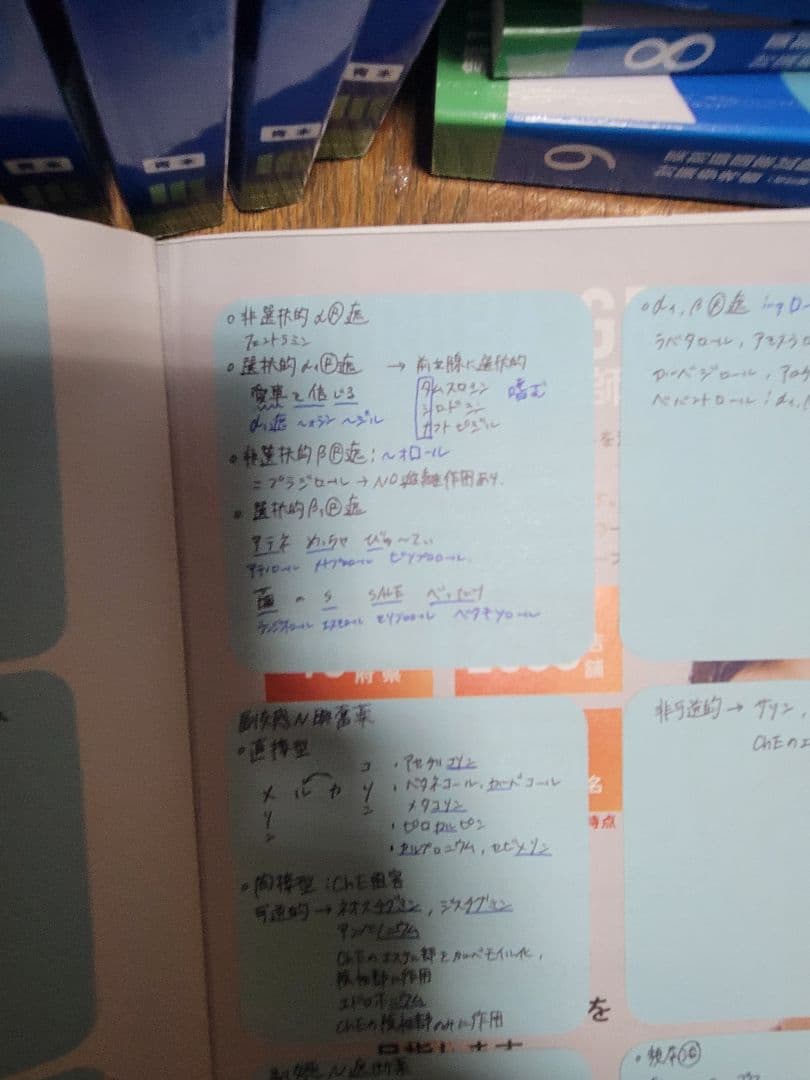 青本
青本
青本
青本
8
9
○非選択的αⓇ遮
フェントラミン
○選択的α₁Ⓡ遮 → 前立腺に選択的
愛車を信じる
タムスロシン
α₁遮 〜オシン 〜ジル
シロドシン
○非選択的βⓇ遮:〜オロール
ニプラジロール→NO遊離作用あり.
○選択的β₁Ⓡ遮
アテネ めっちゃ
アテノロール メトプロロール ビソプロロール
の S SALE
ランジオロール エスモロール セリプロロール ベタキソロール
府県
店舗
副交感N興奮薬
○直接型
・アセチルコリン
・ベタネコール、カルバコール
メタコリン
・ピロカルピン
・カルプロニウム、セビメリン
コリン
メリン ル カ
○間接型:ChE阻害
可逆的→ネオスチグミン、ジスチグミン
アンベノニウム
ChEのエステル部をカルバモイル化、
陰性部に作用
エドロホニウム
ChEの陰性部のみに作用
を
目指します
副交感N遮断薬
○α₁,βⓇ遮
ラベタロール、アモスラロ
カルベジロール、アロチ
ベバントロール:α₁,β
非可逆的→サリン、
ChEのエ
名
時点